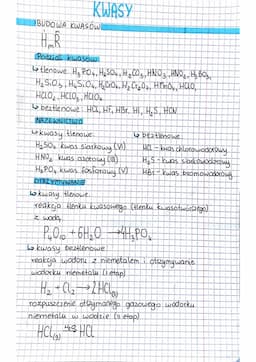 KWASY
BUDOWA KWASÓW
HₘR
Podział kwasów
↳ tlenowe: H₃PO₄, H₂SO₄, H₂CO₃, HNO₃, HNO₂, H₃BO₃,
H₂SiO₃, H₄SiO₄, H₂CrO₄, H₂Cr₂O₇, HMnO₄, HClO,
HClO₂, HClO₃, HClO₄
↳ beztlenowe: HCl, HF, HBr, HI, H₂S, HCN
NAZEWNICTWO
↳ kwasy tlenowe:
H₂SO₄ kwas siarkowy (VI)
HNO₂ kwas azotowy (III)
H₃PO₄ kwas fosforowy (V)
↳ beztlenowe:
HCl - kwas chlorowodorowy
H₂S - kwas siarkowodorowy
HBr - kwas bromowodorowy
OTRZYMYWANIE
↳ kwasy tlenowe
reakcja tlenku kwasowego (tlenku kwasotwórczego)
z wodą
P₄O₁₀ + 6H₂O → 4H₃PO₄
↳ kwasy beztlenowe
reakcja wodoru z niemetalem i otrzymywanie
wodorku niemetalu (I etap)
H₂ + Cl₂ → 2HCl(g)
rozpuszczenie otrzymanego gazowego wodorku
niemetalu w wodzie (II etap)
HCl(g) → HCl